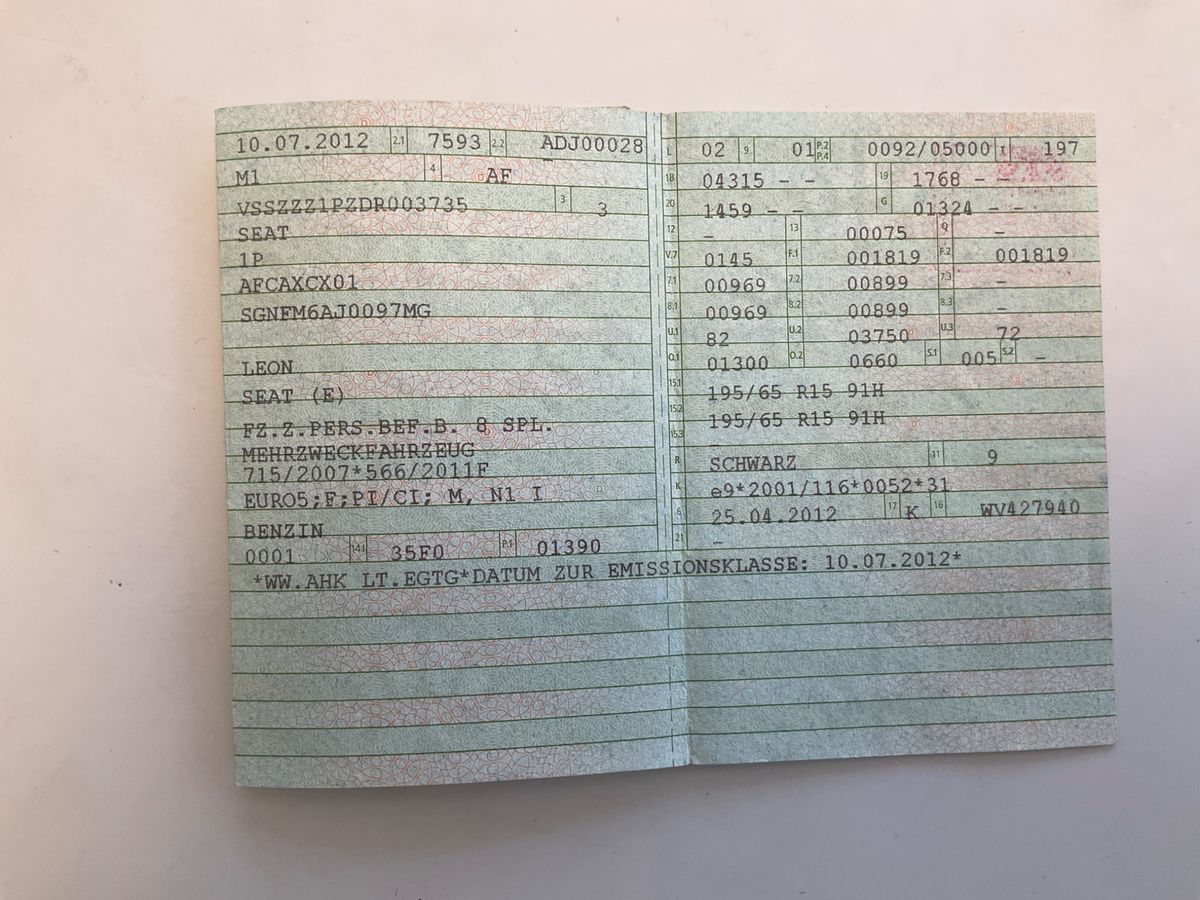 10.07.2012 2.1 7593 2.2 ADJ00028
M1 4 AF
VSSZZZ1PZDR003735 3 3
SEAT
1P
AFCAXCX01
SGNFM6AJ0097MG
LEON
SEAT (E)
FZ.Z.PERS.BEF.B. 8 SPL.
MEHRZWECKFAHRZEUG
715/2007*566/2011F
EURO5;F;PI/CI; M, N1 I
BENZIN
0001 14.1 35F0 P.1 01390
L 02 9 01 P.2 P.4 0092/05000 T 197
18 04315 - - 19 1768 - -
20 1459 - - G 01324 - -
12 - 13 00075 Q -
V.7 0145 F.1 001819 F.2 001819
7.1 00969 7.2 00899 7.3 -
8.1 00969 8.2 00899 8.3 -
U.1 82 U.2 03750 U.3 72
O.1 01300 O.2 0660 S.1 005 S.2 -
15.1 195/65 R15 91H
15.2 195/65 R15 91H
15.3
R SCHWARZ 11 9
K e9*2001/116*0052*31
6 25.04.2012 17 K 16 WV427940
21 -
*WW.AHK LT.EGTG*DATUM ZUR EMISSIONSKLASSE: 10.07.2012*